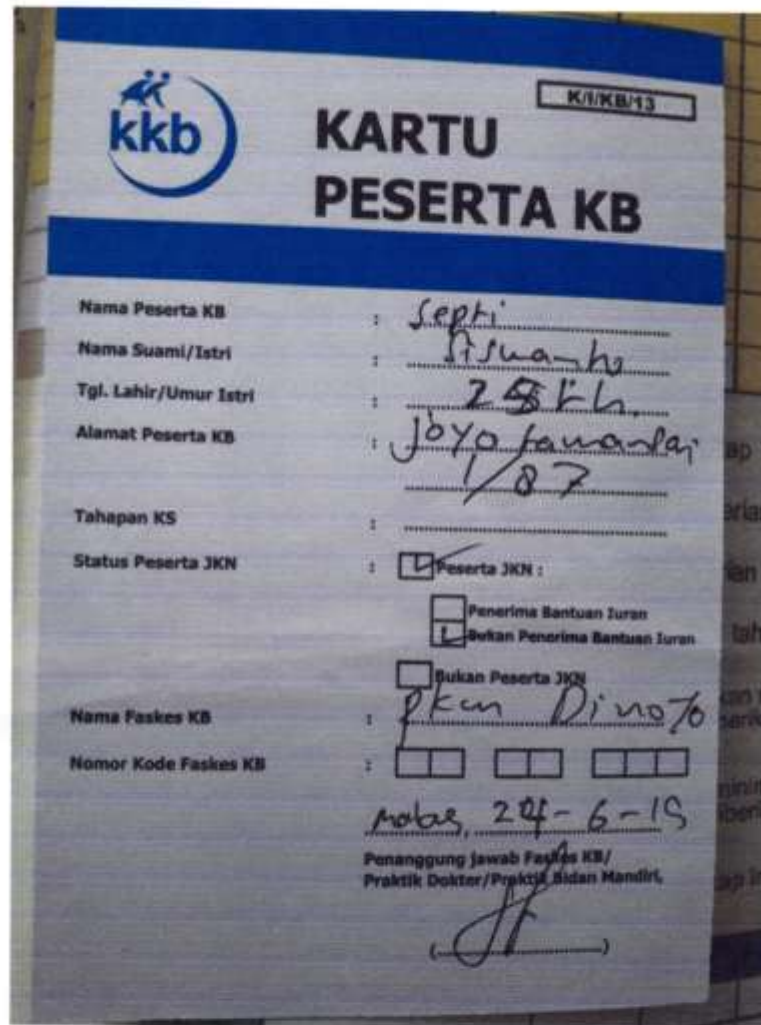 K/I/KB/13
kkb
KARTU
PESERTA KB
Nama Peserta KB : Septi
Nama Suami/Istri : Siswanto
Tgl. Lahir/Umur Istri : th.
Alamat Peserta KB : Joyo
1/87
Tahapan KS :
Status Peserta JKN : Peserta JKN :
Penerima Bantuan Iuran
Bukan Penerima Bantuan Iuran
Bukan Peserta JKN
Nama Faskes KB : Pkm Dinoyo
Nomor Kode Faskes KB :
24-6-19
Penanggung jawab Faskes KB/
Praktik Dokter/Praktik Bidan Mandiri,
(            )